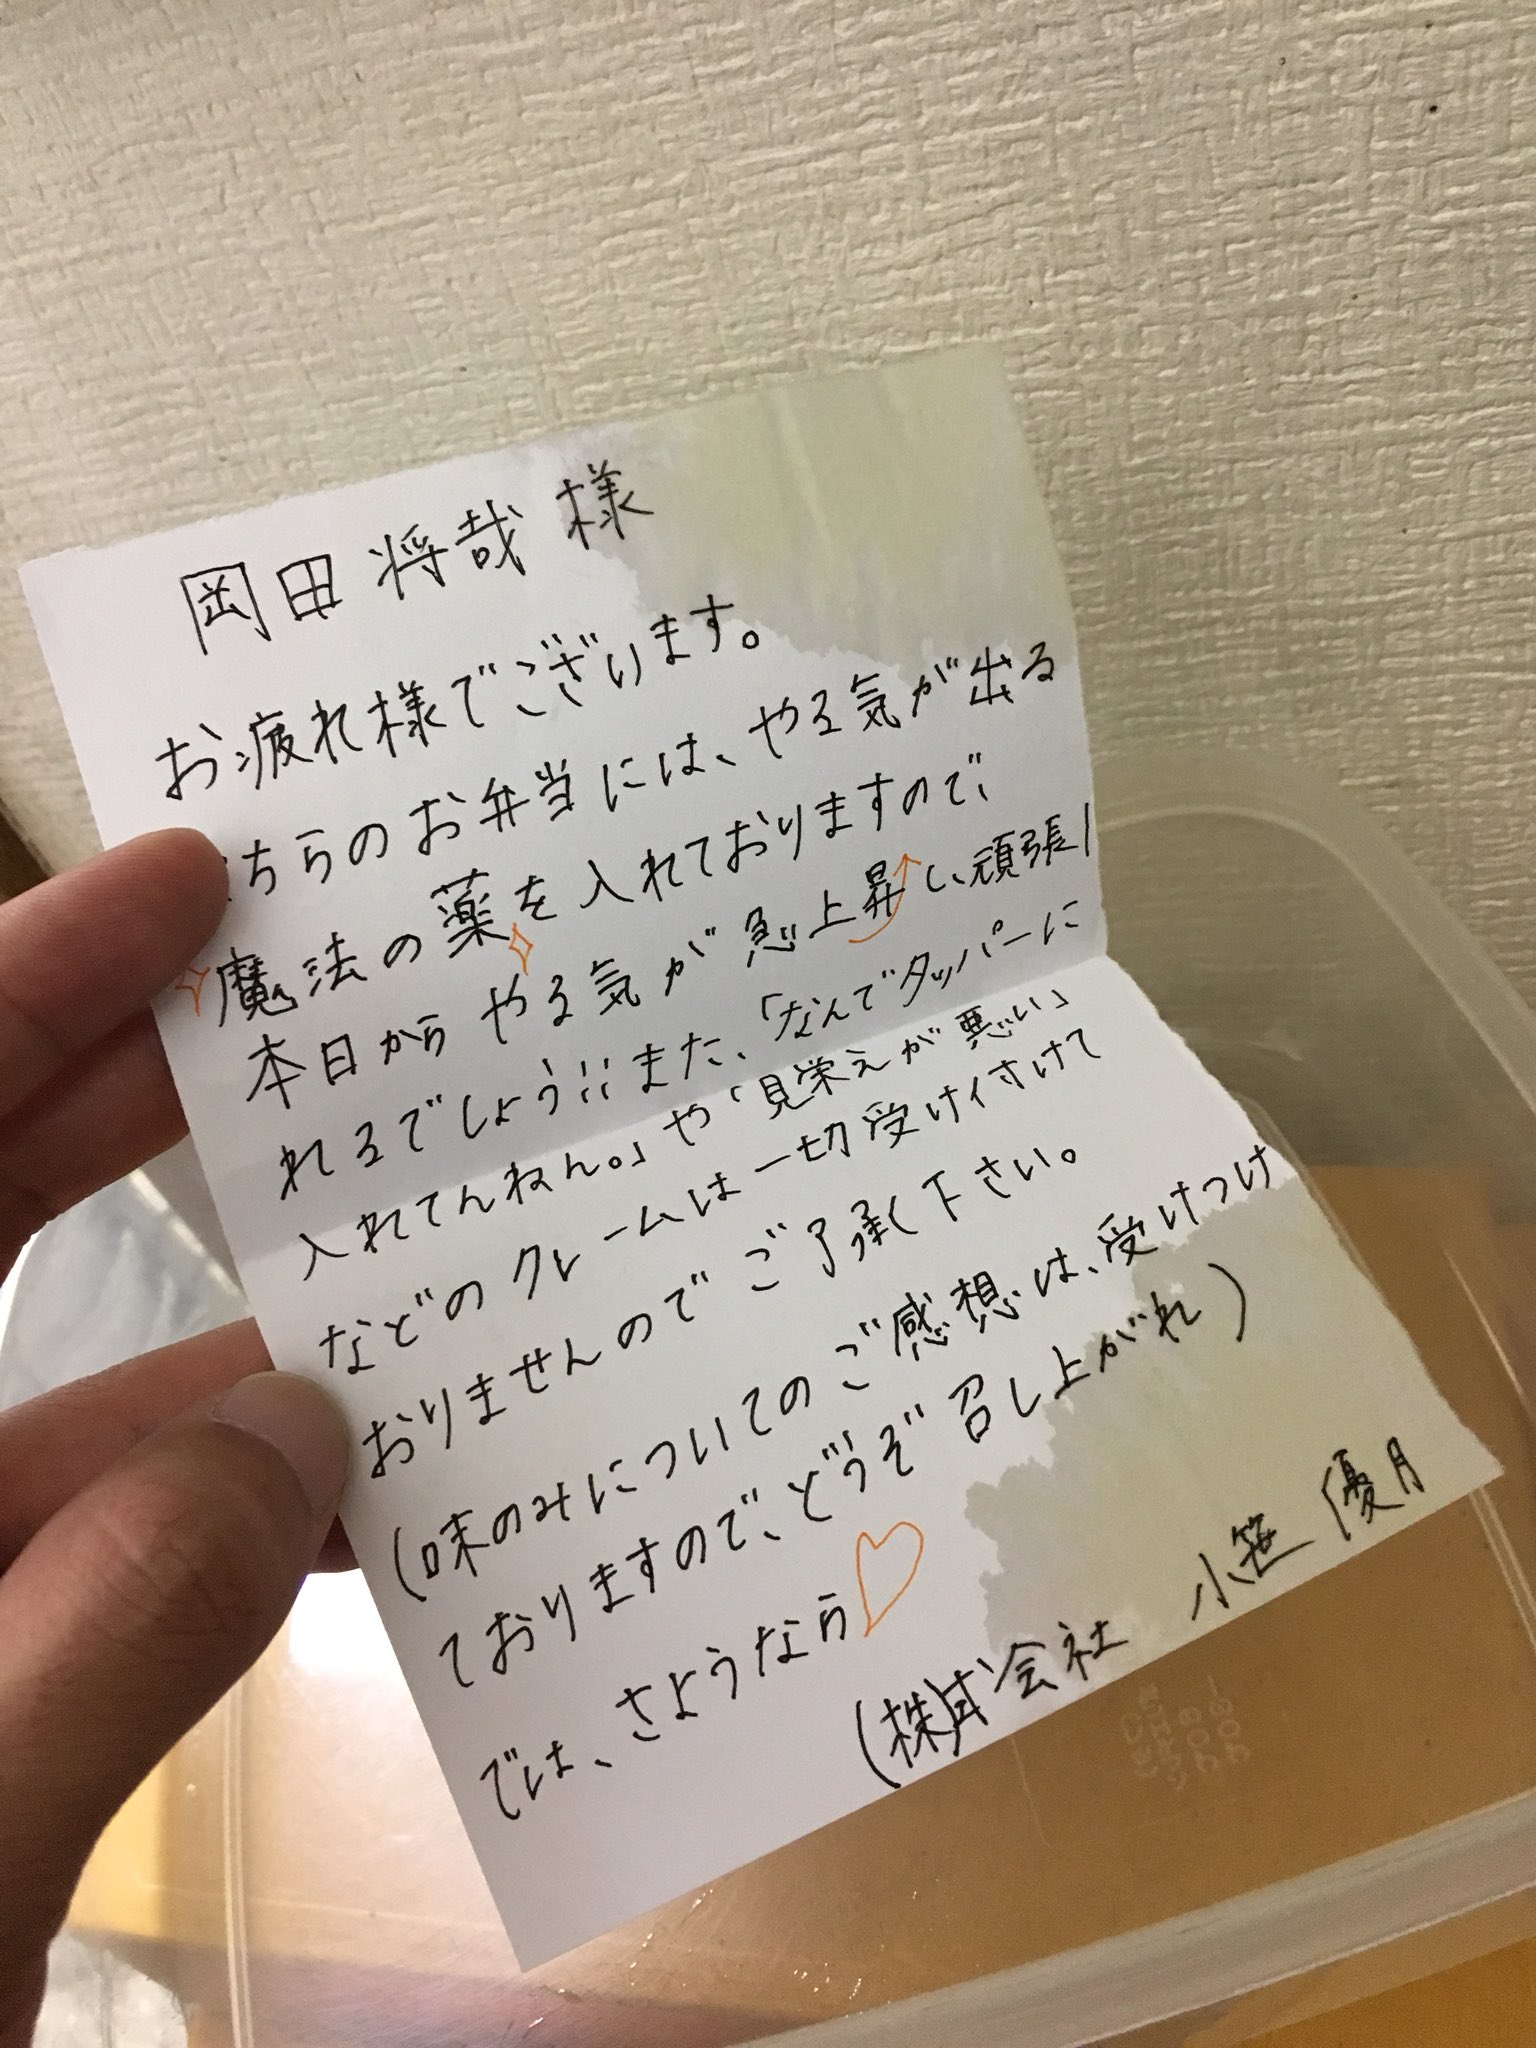 岡田将哉様
お疲れ様でございます。
ちらのお弁当には、やる気が出る
魔法の薬を入れておりますので、
本日からやる気が急上昇し、頑張
れるでしょう!!また、「なんでタッパーに
入れてんねん。」や「見栄えが悪い」
などのクレームは一切受け付けて
おりませんのでご了承く下さい。
(味のみについてのご感想は、受けつけ
ておりますので、どうぞ召し上がれ)
では、さようなら♡
(株)会社 小笹優月